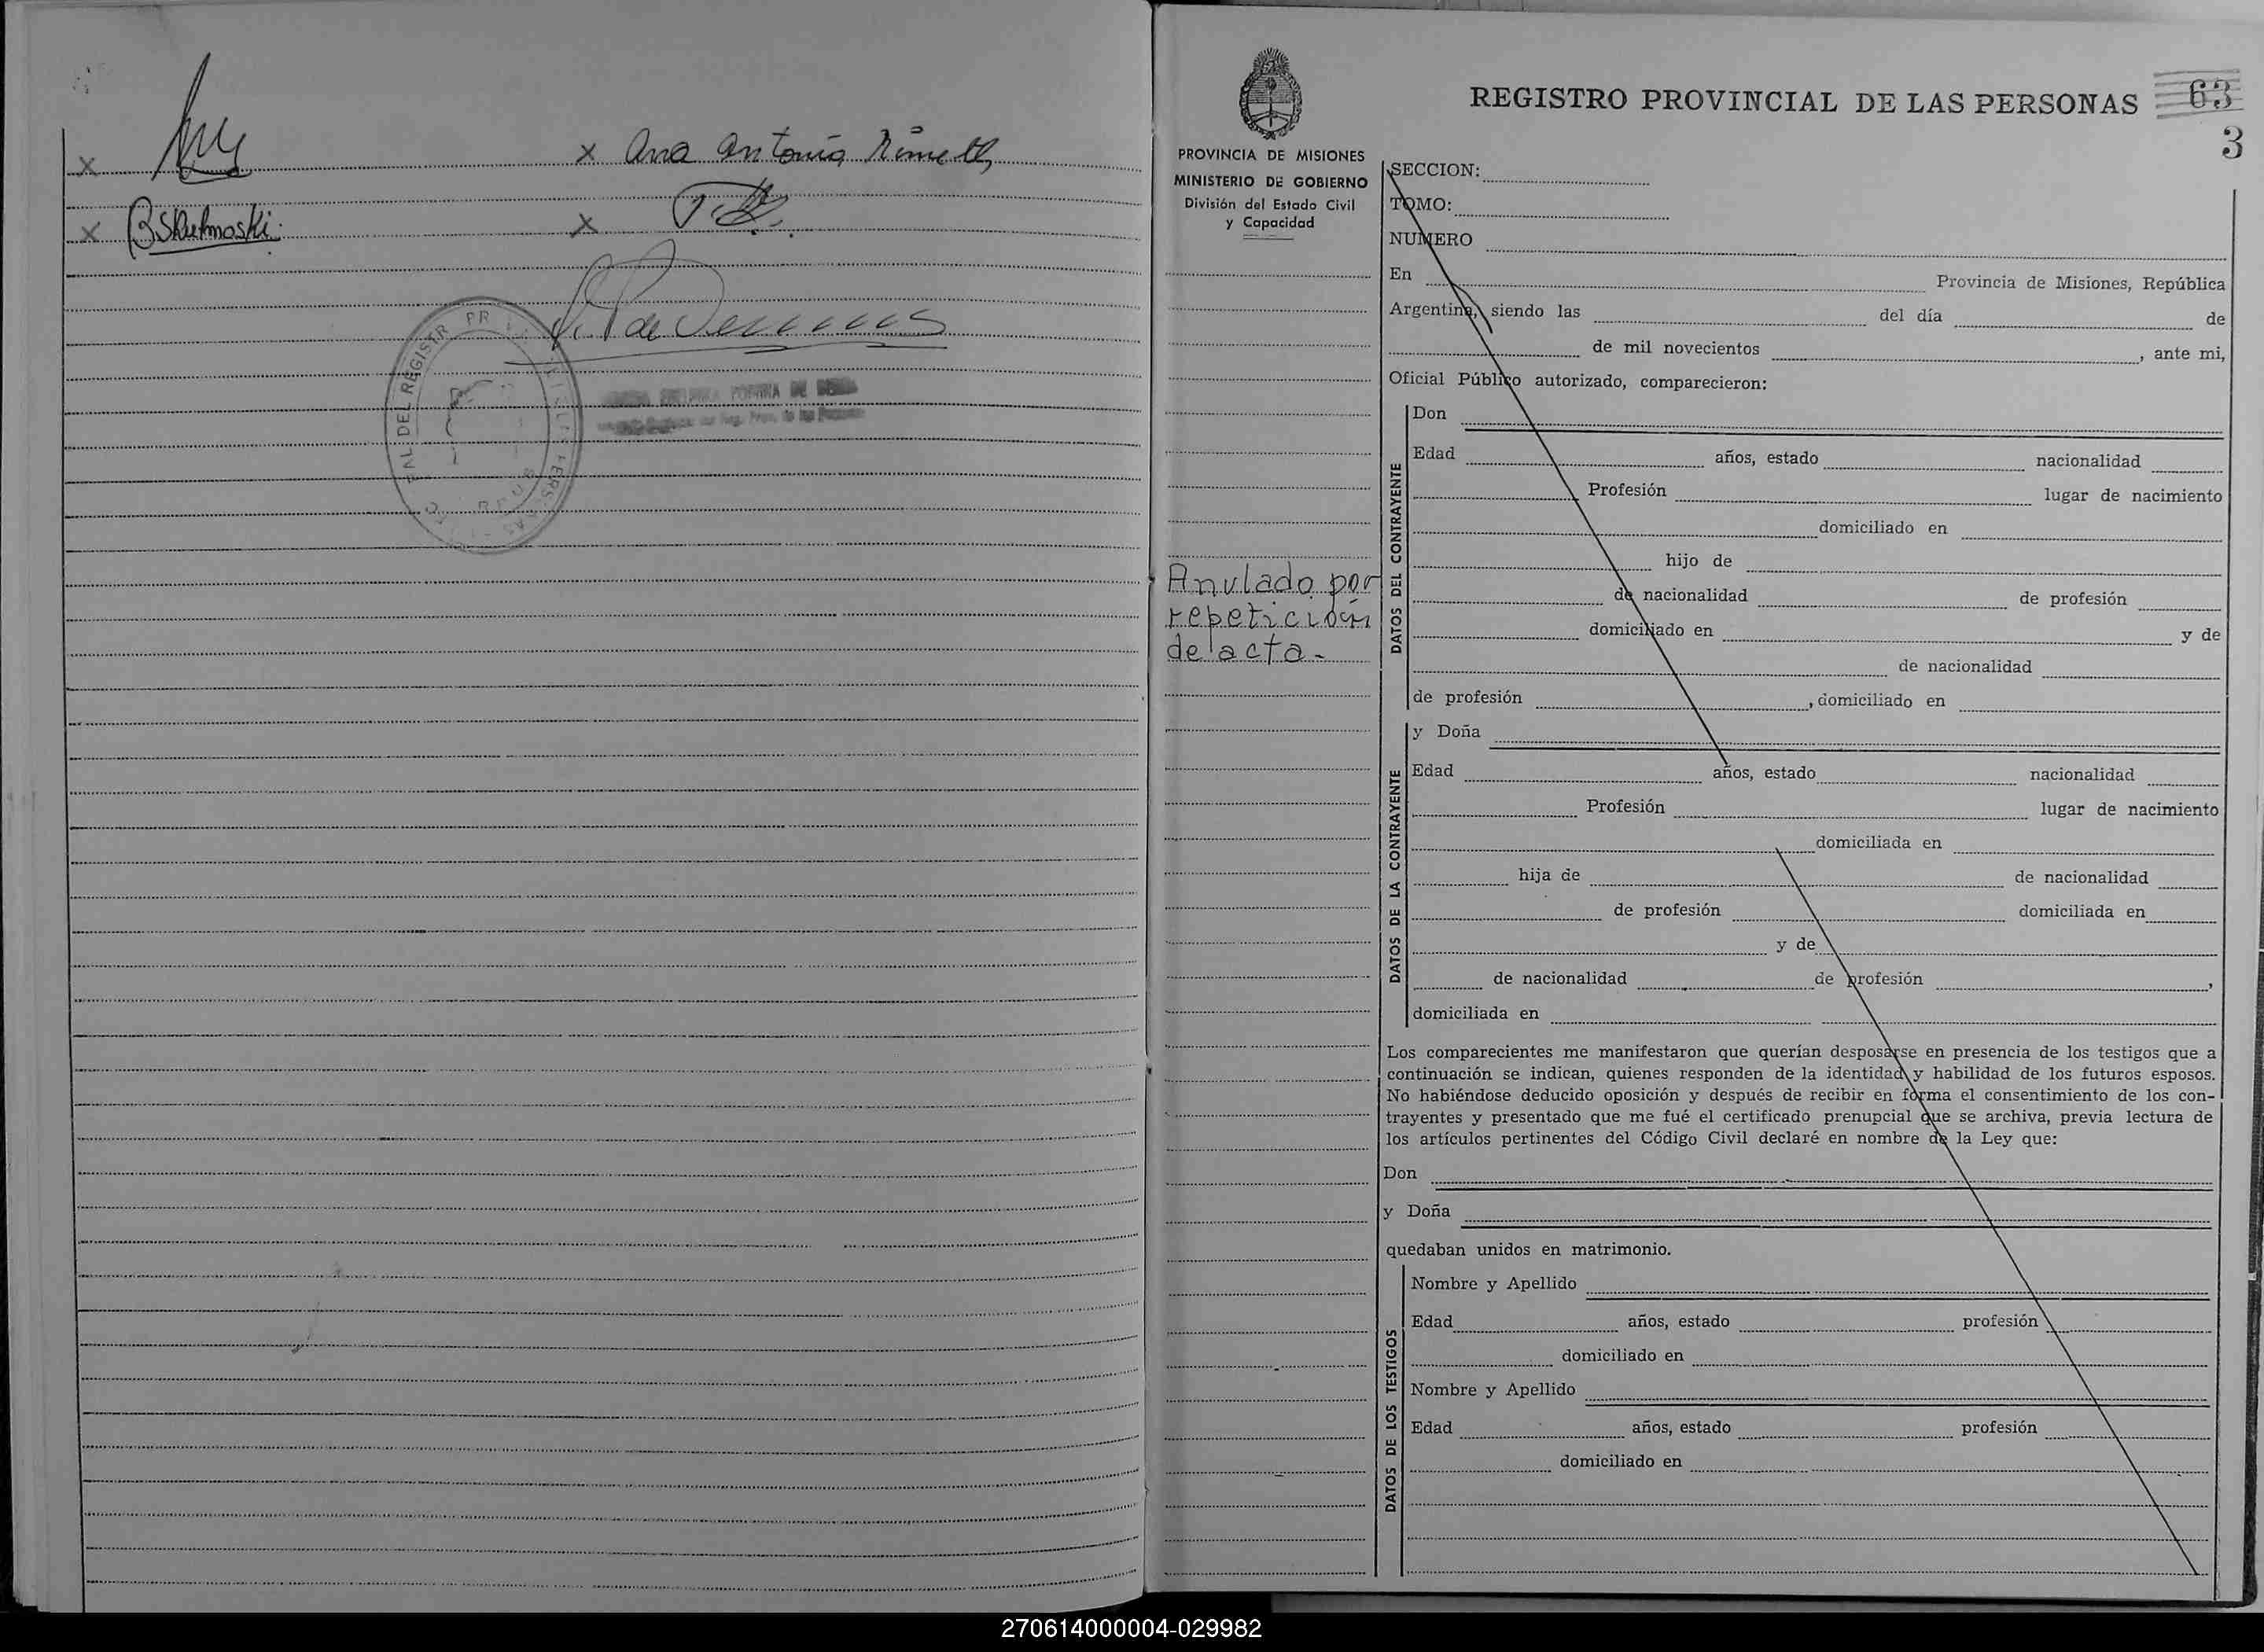 x
x Ana Antonia
x
x
REGISTRO PROVINCIAL DE LAS PERSONAS 63
3
PROVINCIA DE MISIONES
MINISTERIO DE GOBIERNO
División del Estado Civil
y Capacidad
Anulado por
repetición
de acta -
SECCION:
TOMO:
NUMERO
En Provincia de Misiones, República
Argentina, siendo las del día de
de mil novecientos , ante mi,
Oficial Público autorizado, comparecieron:
DATOS DEL CONTRAYENTE
Don
Edad años, estado nacionalidad
Profesión lugar de nacimiento
domiciliado en
hijo de
de nacionalidad de profesión
domiciliado en y de
de nacionalidad
de profesión , domiciliado en
DATOS DE LA CONTRAYENTE
y Doña
Edad años, estado nacionalidad
Profesión lugar de nacimiento
domiciliada en
hija de de nacionalidad
de profesión domiciliada en
y de
de nacionalidad de profesión ,
domiciliada en
Los comparecientes me manifestaron que querían desposarse en presencia de los testigos que a
continuación se indican, quienes responden de la identidad y habilidad de los futuros esposos.
No habiéndose deducido oposición y después de recibir en forma el consentimiento de los con-
trayentes y presentado que me fué el certificado prenupcial que se archiva, previa lectura de
los artículos pertinentes del Código Civil declaré en nombre de la Ley que:
Don
y Doña
quedaban unidos en matrimonio.
DATOS DE LOS TESTIGOS
Nombre y Apellido
Edad años, estado profesión
domiciliado en
Nombre y Apellido
Edad años, estado profesión
domiciliado en
270614000004-029982